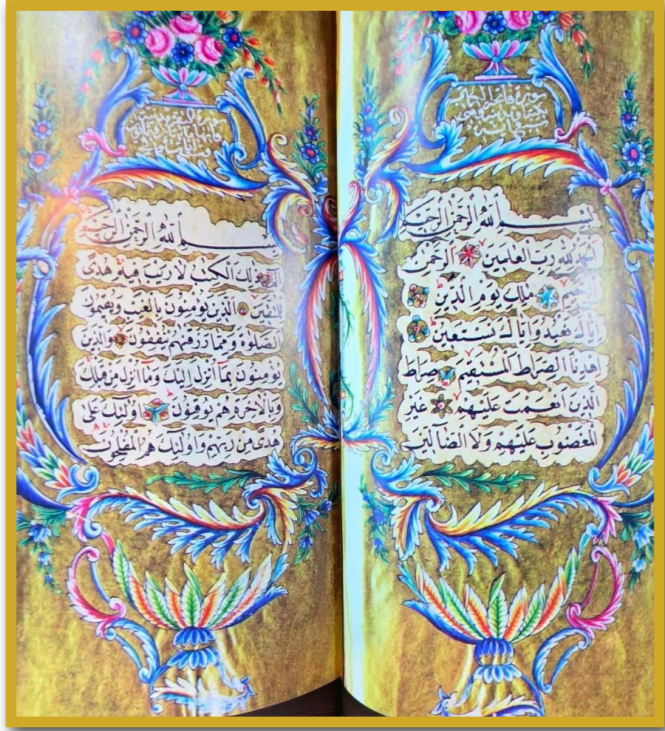 سورة فاتحة الكتاب
بسم الله الرحمن الرحيم
الحمد لله رب العالمين الرحمن
الرحيم ملك يوم الدين
اياك نعبد واياك نستعين
اهدنا الصراط المستقيم صراط
الذين انعمت عليهم غير
المغضوب عليهم ولا الضالين
بسم الله الرحمن الرحيم
الم ذلك الكتب لا ريب فيه هدى
للمتقين الذين يؤمنون بالغيب ويقيمون
الصلوة ومما رزقنهم ينفقون والذين
يؤمنون بما انزل اليك وما انزل من قبلك
وبالاخرة هم يوقنون اولئك على
هدى من ربهم واولئك هم المفلحون